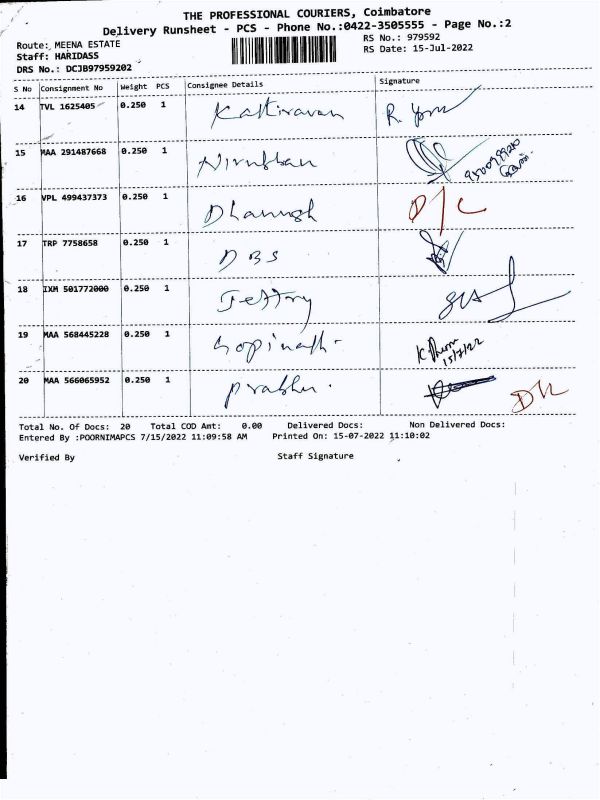 THE PROFESSIONAL COURIERS, Coimbatore
Delivery Runsheet - PCS - Phone No.:0422-3505555 - Page No.:2
Route: MEENA ESTATE
RS No.: 979592
Staff: HARIDASS
RS Date: 15-Jul-2022
DRS No.: DCJB97959202
S No Consignment No Weight PCS Consignee Details Signature
14 TVL 1625405 0.250 1 Kathiravan R.
15 MAA 291487668 0.250 1 Nirubhan
16 VPL 499437373 0.250 1 Dhanush D/C
17 TRP 7758658 0.250 1 DBS
18 IXM 501772000 0.250 1 Jeffry
19 MAA 568445228 0.250 1 Gopinath- 15/7/22
20 MAA 566065952 0.250 1 Prabhu.
Total No. Of Docs: 20 Total COD Amt: 0.00 Delivered Docs: Non Delivered Docs:
Entered By :POORNIMAPCS 7/15/2022 11:09:58 AM Printed On: 15-07-2022 11:10:02
Verified By Staff Signature